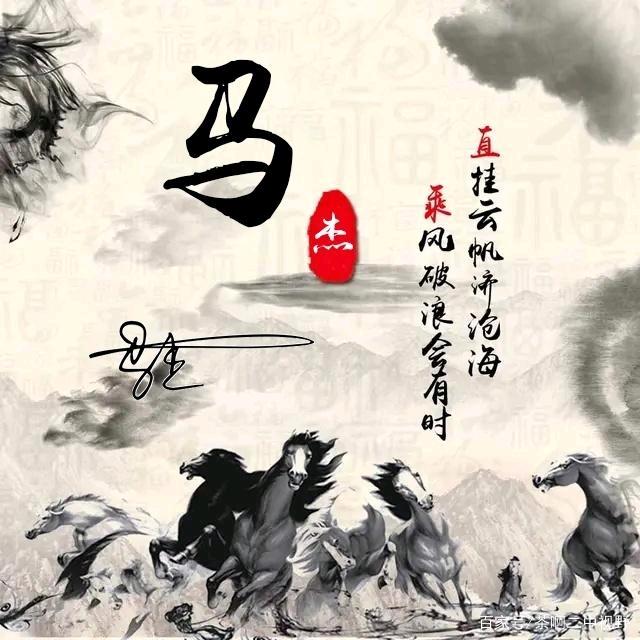 马
杰
直挂云帆济沧海
乘风破浪会有时
百家号/茶啊二中视野